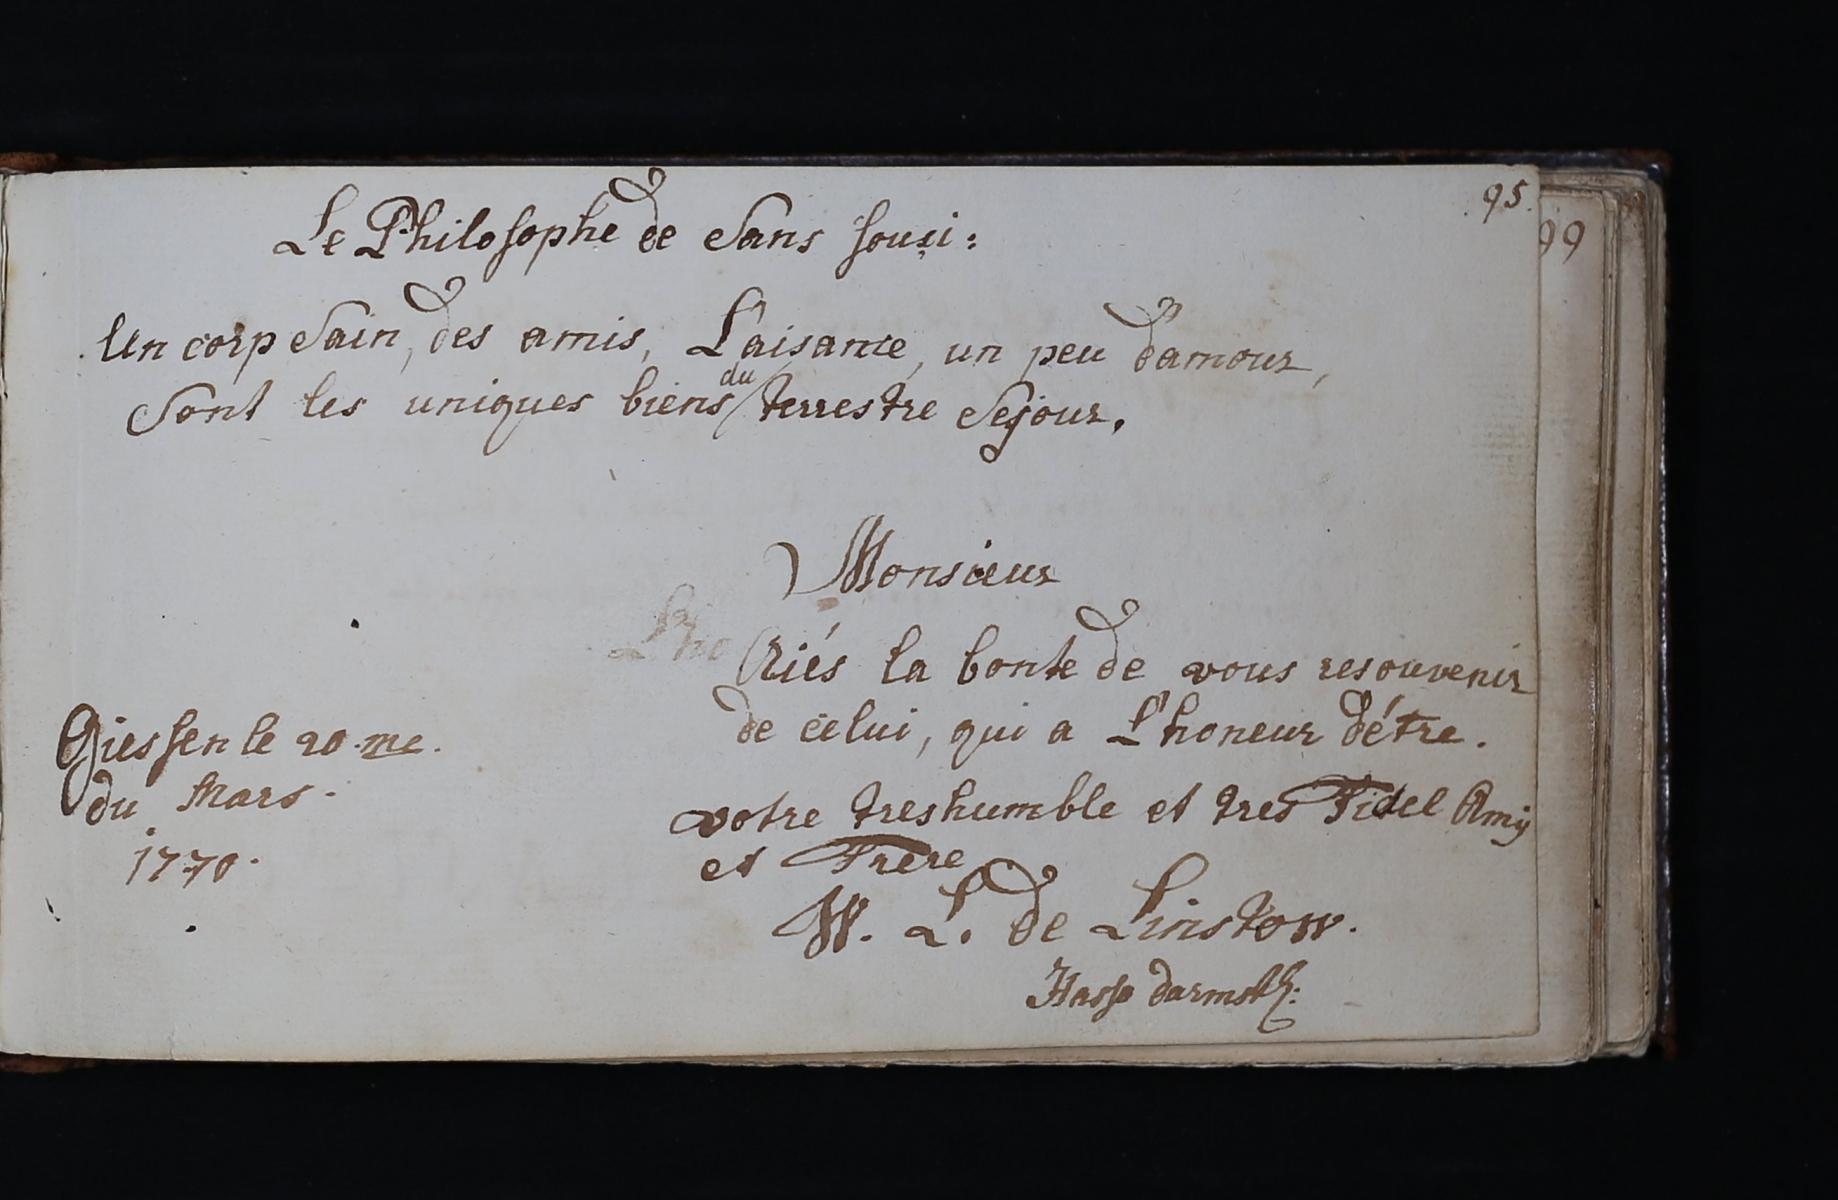 95.
99
Le Philosophe de Sans souçi:
Un corp Sain, des amis, L'aisance, un peu d'amour,
Sont les uniques biens du terrestre Sejour.
Monsieur
Aiés la bonte de vous resouvenir
de celui, qui a L'honeur d'étre.
votre treshumble et tres Fidel Amÿ
et Frere
W. L. de Linstow.
Giessen le 20.me.
du Mars.
1770.